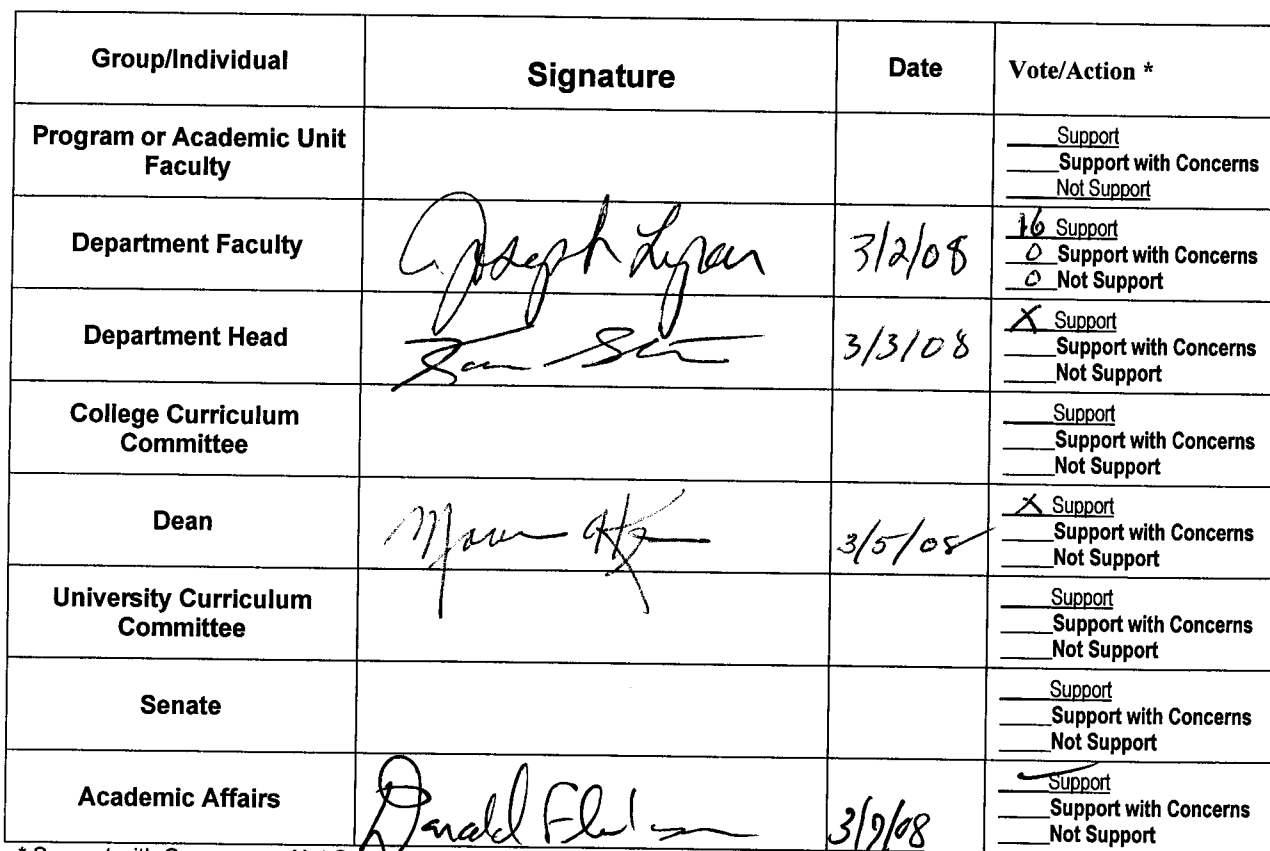 Group/Individual Signature Date Vote/Action *
Program or Academic Unit Faculty
___Support
___Support with Concerns
___Not Support
Department Faculty Joseph 3/2/08
16 Support
0 Support with Concerns
0 Not Support
Department Head 3/3/08
X Support
___Support with Concerns
___Not Support
College Curriculum Committee
___Support
___Support with Concerns
___Not Support
Dean 3/5/08
X Support
___Support with Concerns
___Not Support
University Curriculum Committee
___Support
___Support with Concerns
___Not Support
Senate
___Support
___Support with Concerns
___Not Support
Academic Affairs 3/9/08
✓ Support
___Support with Concerns
___Not Support